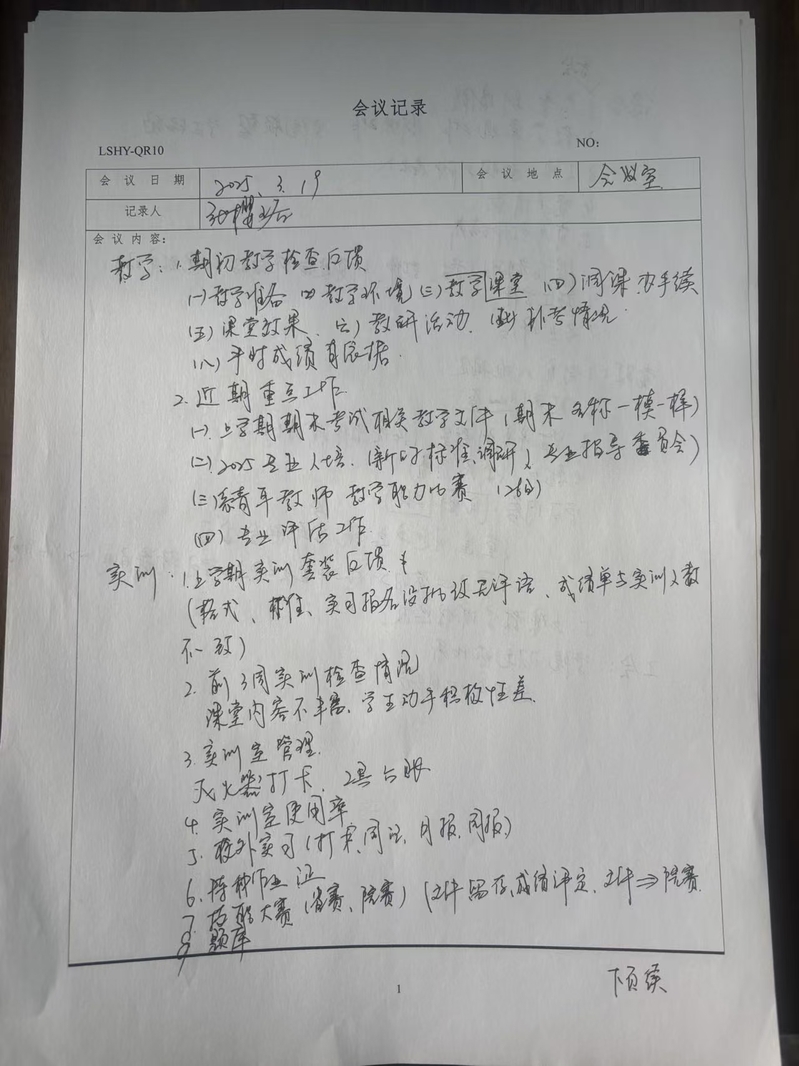 会议记录
LSHY-QR10 NO:
会议日期 2025.3.19 会议地点 会议室
记录人
会议内容:
教学:1.期初教学检查反馈
(一)教学准备 (二)教学环境 (三)教学课堂 (四)调课办手续
(五)课堂效果、(六)教研活动、(七)补考情况
(八)平时成绩有依据
2.近期重点工作
(一)上学期期末考试相关教学文件(期末名称一模一样)
(二)2025专业人培(新的标准、调研、专业指导委员会)
(三)青年教师教学能力比赛(26日)
(四)专业评估工作
实训:1.上学期实训套装反馈
(格式、标准、实习报告没批改无评语、成绩单与实训人数
不一致)
2.前3周实训检查情况
课堂内容不丰富、学生动手积极性差
3.实训室管理
灭火器打卡、工具台账
4.实训室使用率
5.校外实习(打卡、周记、月报、周报)
6.特种作业证
7.技能大赛(省赛、院赛)(文件留存、成绩评定、文件⇒院赛
8 题库
下页续
1